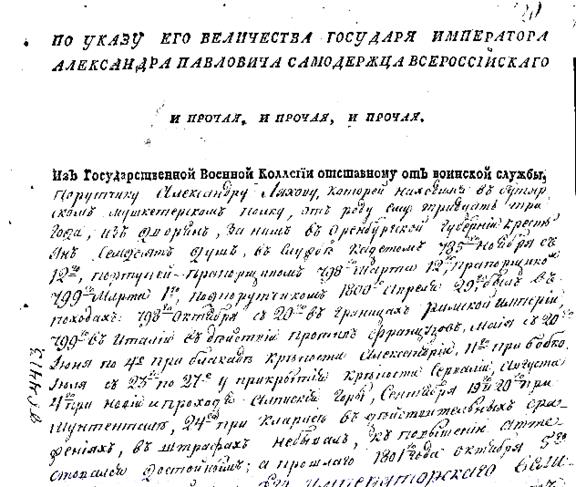 ПО УКАЗУ ЕГО ВЕЛИЧЕСТВА ГОСУДАРЯ ИМПЕРАТОРА
АЛЕКСАНДРА ПАВЛОВИЧА САМОДЕРЖЦА ВСЕРОССІЙСКАГО
И ПРОЧАЯ, И ПРОЧАЯ, И ПРОЧАЯ.
Изъ Государственной Военной Коллегіи отставному отъ воинской службы,
Порутчику Александру Ляхову, которой находился въ Бутыр
скомъ мушкетерскомъ полку, отъ роду ему тридцать три
года, изъ дворянъ, за нимъ въ Оренбургской губерніи кресть
янъ семдесятъ душъ, въ службѣ кадетомъ 785 ноября съ
12го, портупей-прапорщикомъ 798 марта 12, прапорщикомъ
799 марта 1го, подпорутчикомъ 1800 апреля 29го былъ въ
походахъ: 798го октября съ 20го въ границахъ Римской Имперіи,
799го въ Италіи въ действіи противъ французовъ, маія съ 20го
Іюня по 4е при блокадѣ крѣпости Александріи, 11го при
Іюля съ 23го по 27е у прикрытія крѣпости августа
4го при Нови и проходѣ Алпискіе горы, сентября 19го 20го при
24го при въ действительныхъ сра
женіяхъ, въ штрафахъ не бывалъ, къ повышенію атте
стовался достойнымъ; а прошлаго 1801 года октября
Его Императорскаго Вели-
4413